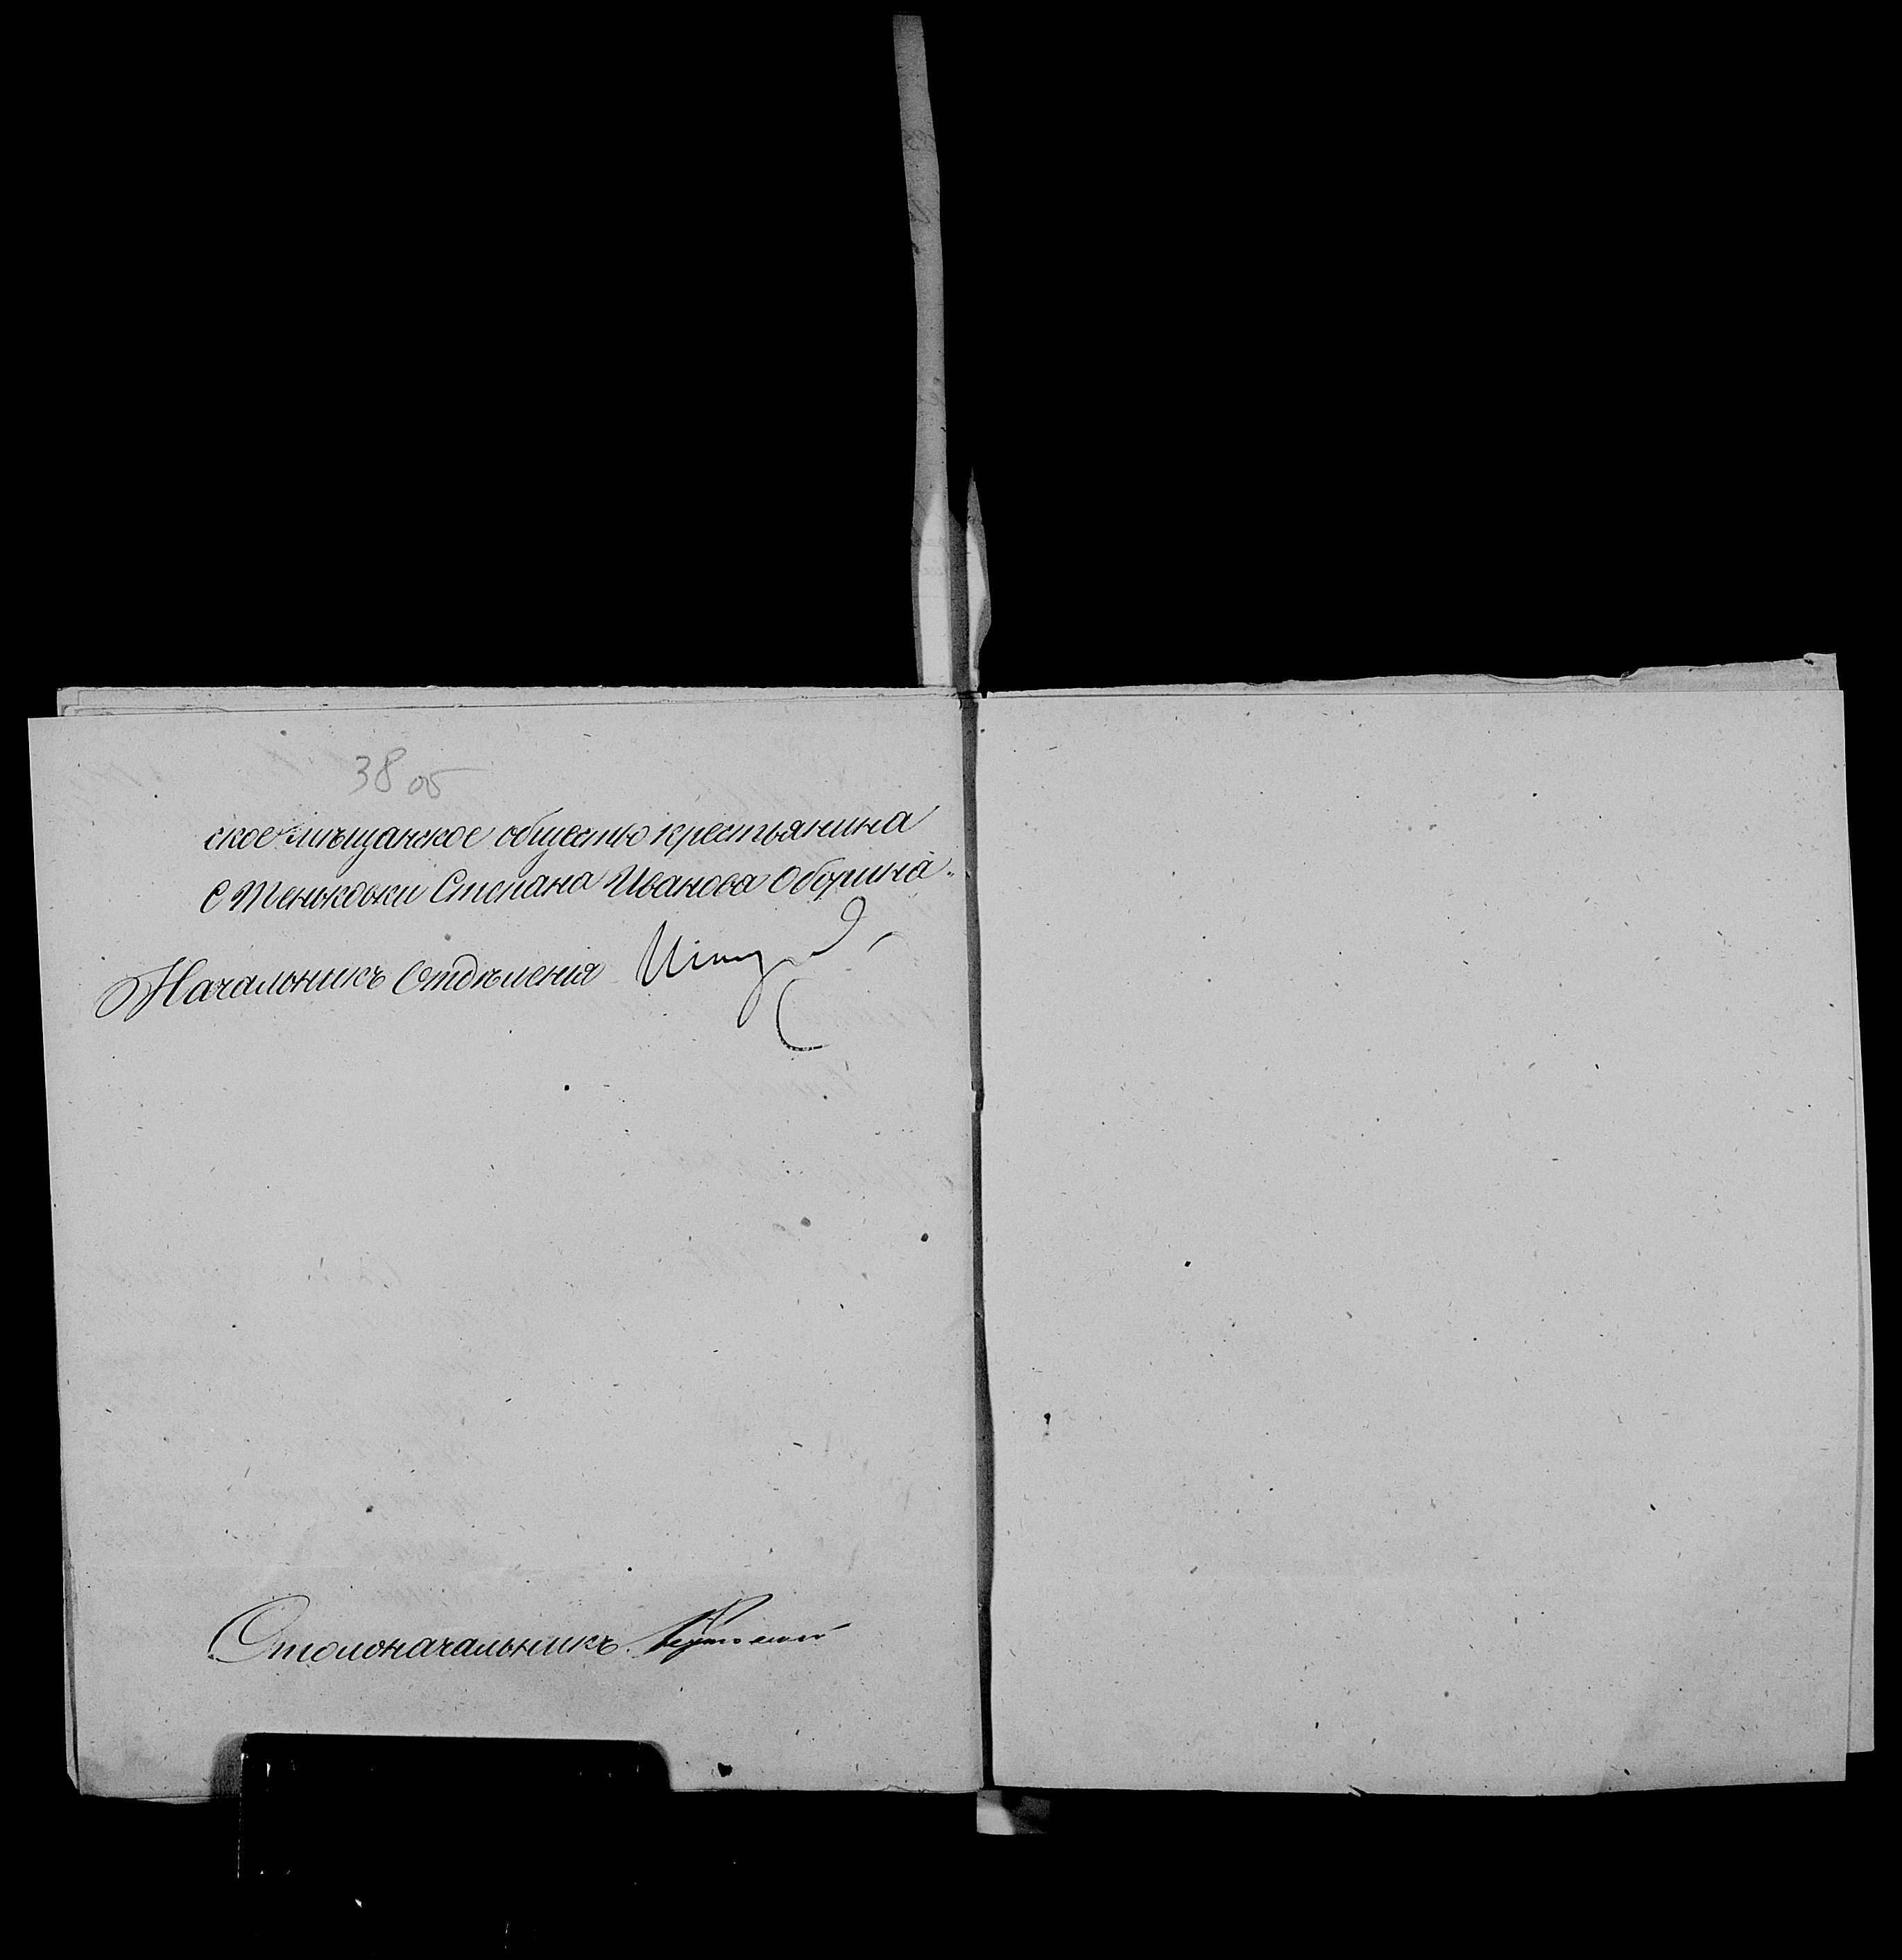 38 об
ское мѣщанское общество крестьянина
с Теньковки Степана Иванова Оборина.
Начальникъ Отдѣленія
Столоначальникъ